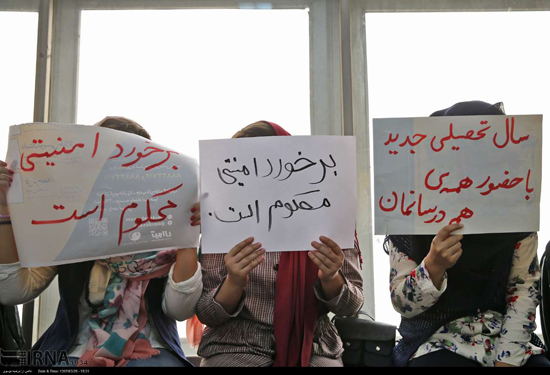 برخورد امنیتی
محکوم است
برخورد امنیتی
محکوم است.
سال تحصیلی جدید
با حضور همه‌ی
هم درسانمان
IRNA